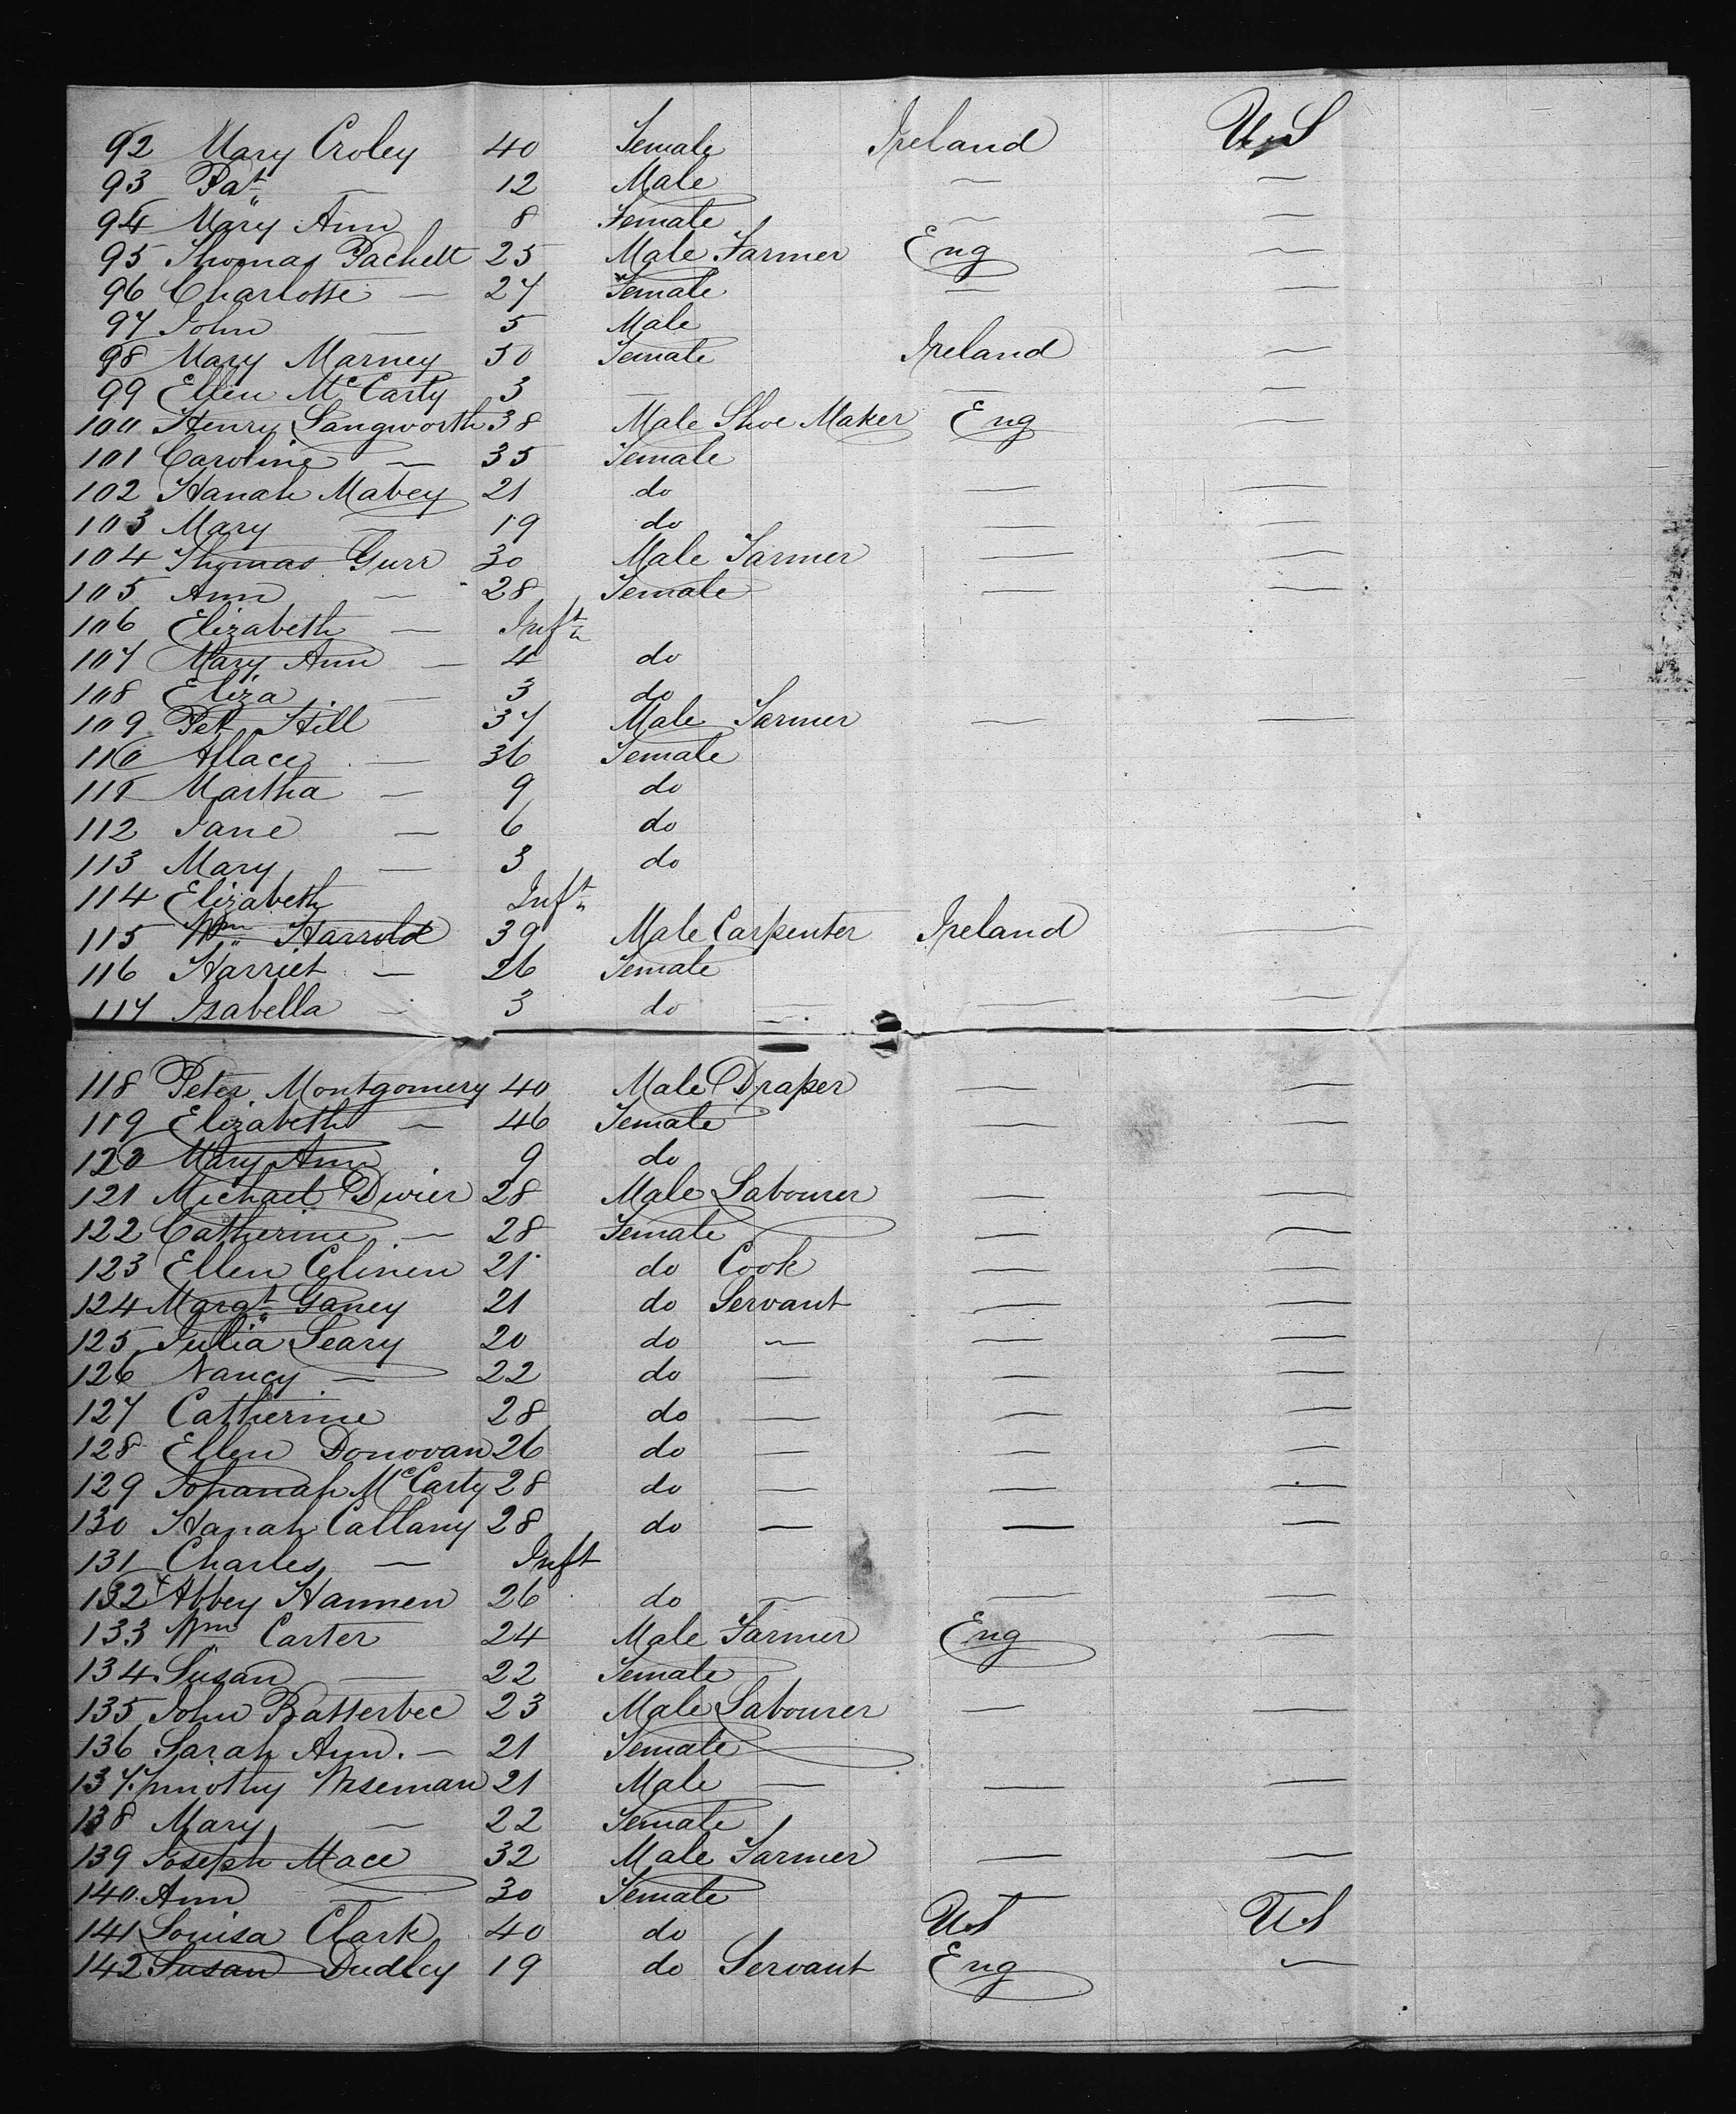 92 Mary Croley 40 Female Ireland U,S
93 Pat — 12 Male — —
94 Mary Ann 8 Female — —
95 Thomas Pachett 25 Male Farmer Eng —
96 Charlotte — 27 Female — —
97 John — 5 Male
98 Mary Marney 50 Female Ireland —
99 Ellen McCarty 3 — — —
100 Henry Langworth 38 Male Shoe Maker Eng —
101 Caroline — 35 Female
102 Hanah Mabey 21 do — —
103 Mary — 19 do — —
104 Thomas Gurr 30 Male Farmer — —
105 Ann — 28 Female — —
106 Elizabeth — Inft
107 Mary Ann — 4 do
108 Eliza — 3 do
109 Pett Hill 37 Male Farmer — —
110 Allace — 36 Female
111 Martha — 9 do
112 Jane — 6 do
113 Mary — 3 do
114 Elizabeth Inft
115 Wm Harrold 39 Male Carpenter Ireland —
116 Harriet — 26 Female
117 Isabella — 3 do — — —
118 Peter Montgomery 40 Male Draper — —
119 Elizabeth — 46 Female — —
120 Mary Ann 9 do
121 Michael Dwier 28 Male Labourer — —
122 Catherine — 28 Female — —
123 Ellen Celinen 21 do Cook — —
124 Margt Ganey 21 do Servant — —
125 Julia Leary 20 do — — —
126 Nancy — 22 do — — —
127 Catherine 28 do — — —
128 Ellen Donovan 26 do — — —
129 Johanah McCarty 28 do — — —
130 Hanah Callany 28 do — — —
131 Charles — Inft
132 Abbey Hannen 26 do — — —
133 Wm Carter 24 Male Farmer Eng —
134 Susan — 22 Female
135 John Batterbee 23 Male Labourer — —
136 Sarah Ann — 21 Female
137 Timothy Wiseman 21 Male — — —
138 Mary — 22 Female
139 Joseph Mace 32 Male Farmer — —
140 Ann — 30 Female —
141 Louisa Clark 40 do US US
142 Susan Dudley 19 do Servant Eng —